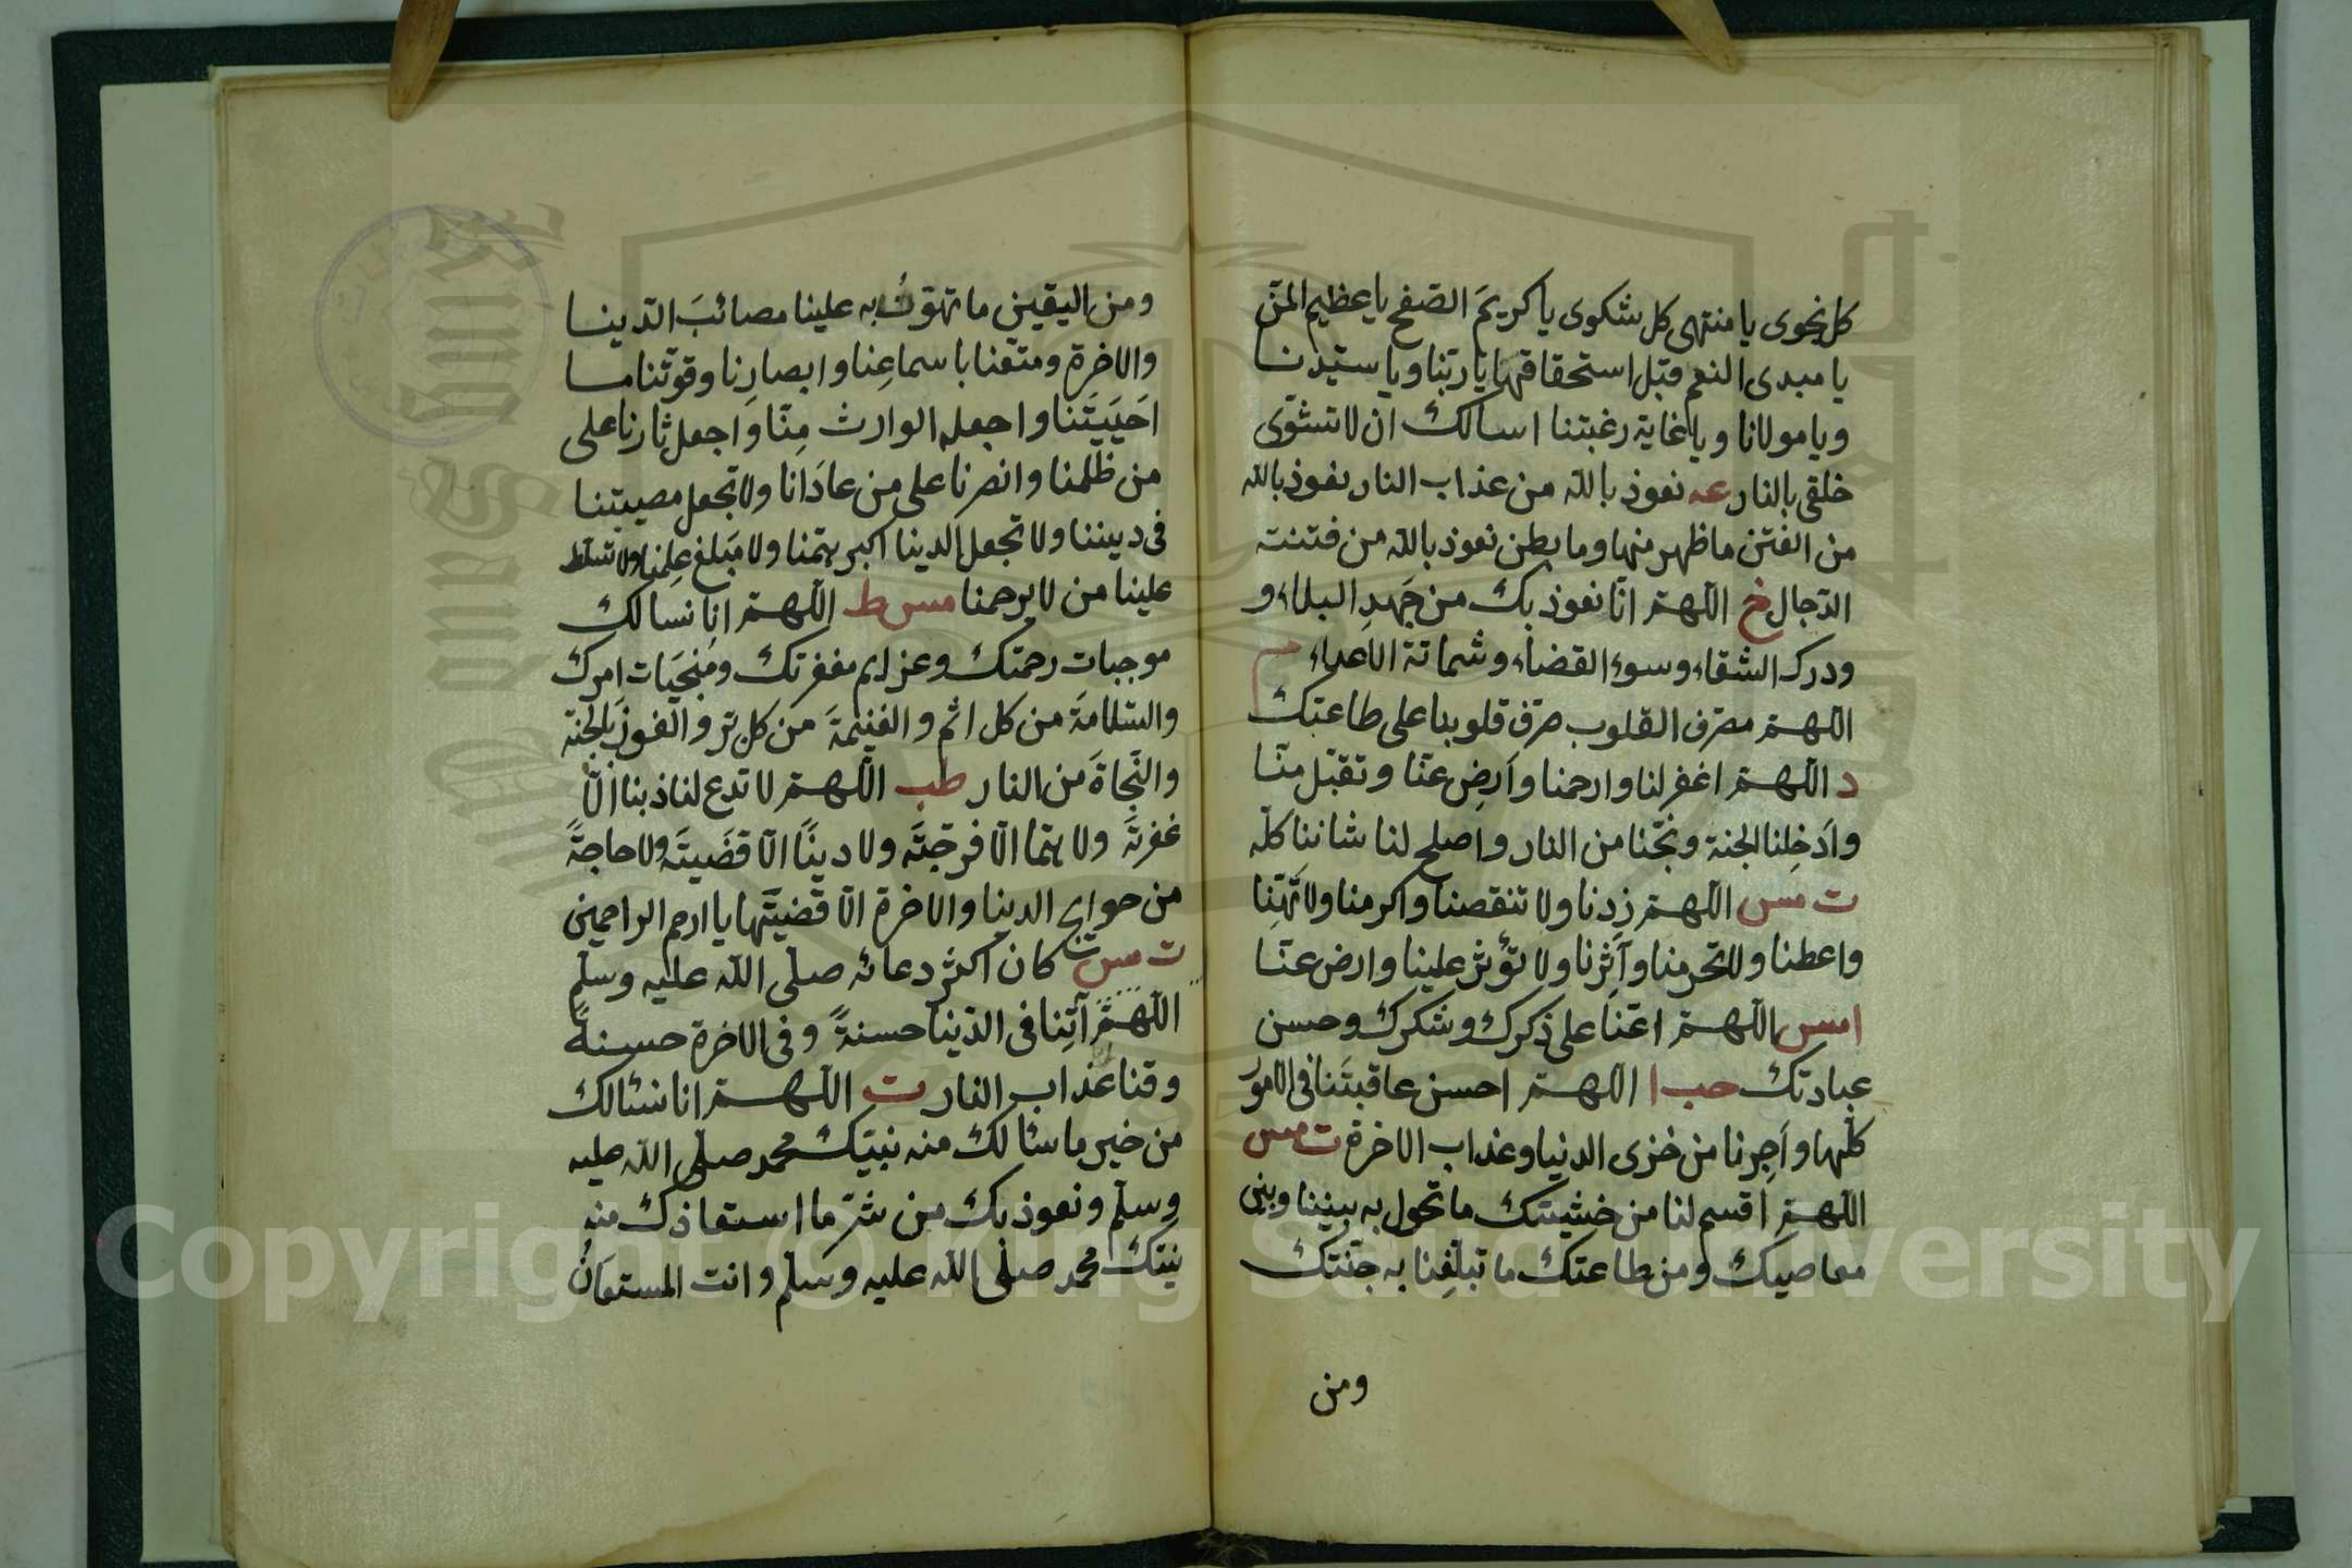 كل نجوى يا منتهى كل شكوى يا كريمَ الصّفح يا عظيم المنّ
يا مبدى النعم قبل استحقاقها يا ربّنا ويا سيّدنا
ويا مولانا ويا غاية رغبتنا اسالك ان لا تشوّى
خلقى بالنار عه نعوذ بالله من عذاب النار نعوذ بالله
من الفتن ما ظهر منها وما بطن نعوذ بالله من فتنته
الدّجال خ اللّهمّ انّا نعوذ بك من جَهدِ البلاء و
ودرك الشقاء وسوء القضاء وشماتة الاعداء م
اللّهمّ مصرّف القلوب صرّف قلوبنا على طاعتك
د اللّهمّ اغفر لنا وارحمنا وَارضِ عنّا وتقبّل منّا
واَدخِلنا الجنة ونجّنا من النار واصلح لنا شاننا كلّه
ت مس اللّهمّ زِدنا ولا تنقصنا واكرمنا ولا تُهِنّا
واعطنا ولا تحرمنا وآثِرنا ولا تؤثر علينا وارض عنّا
امس اللّهمّ اعنّا على ذكرك وشكرك وحسن
عبادتك حب ا اللّهمّ احسن عاقبتَنا فى الامور
كلّها واَجِرنا من خزى الدنيا وعذاب الاخرة ت مس
اللّهمّ اقسم لنا من خشيتك ما تحول به بيننا وبين
معاصيك ومن طاعتك ما تبلّغِنا به جنّتك
ومن
ومن اليقين ما تهوّنُ به علينا مصائبَ الدّينا
والاخرة ومتّعنا باسماعِنا وابصارِنا وقوّتنا ما
احَيَيتَنا واجعله الوارث مِنّا وَاجعل ثارنا على
من ظلمنا وانصرنا على من عادَانا ولا تجعل مصيبتنا
فى ديننا ولا تجعل الدينا اكبر همّنا ولا مَبلغ عِلمنا ولا تسلّط
علينا من لا يرحمنا مس ط اللّهمّ انا نسالك
موجبات رحمتك وعزايم مغفرتك ومُنجَيات امرك
والسّلامَة من كل اثم والغنيمَة من كل برّ والفوزَ بالجنة
والنّجاةَ من النار طب اللّهمّ لا تدع لنا ذبنا الّا
غفرتَه ولا همّا الّا فرّجتَه ولا دينًا الّا قضَيتَه ولا حاجةً
من حوايج الدينا والاخرة الّا قضَيتَها يا ارحم الراحمين
ت مس كان اكثر دعائه صلّى الله عليه وسلّم
اللّهمّ آتِنا فى الدّينا حسنةً وفى الاخرة حسنةً
وقنا عذاب النار ت اللّهمّ انا نسئالك
من خير ما سئالك منه نبيّك محمد صلّى الله عليه
وسلّم ونعوذ بك من شرّ ما استعاذك منه
نبيّك محمد صلّى الله عليه وسلّم وانت المستعانُ
Copyright © King Saud University